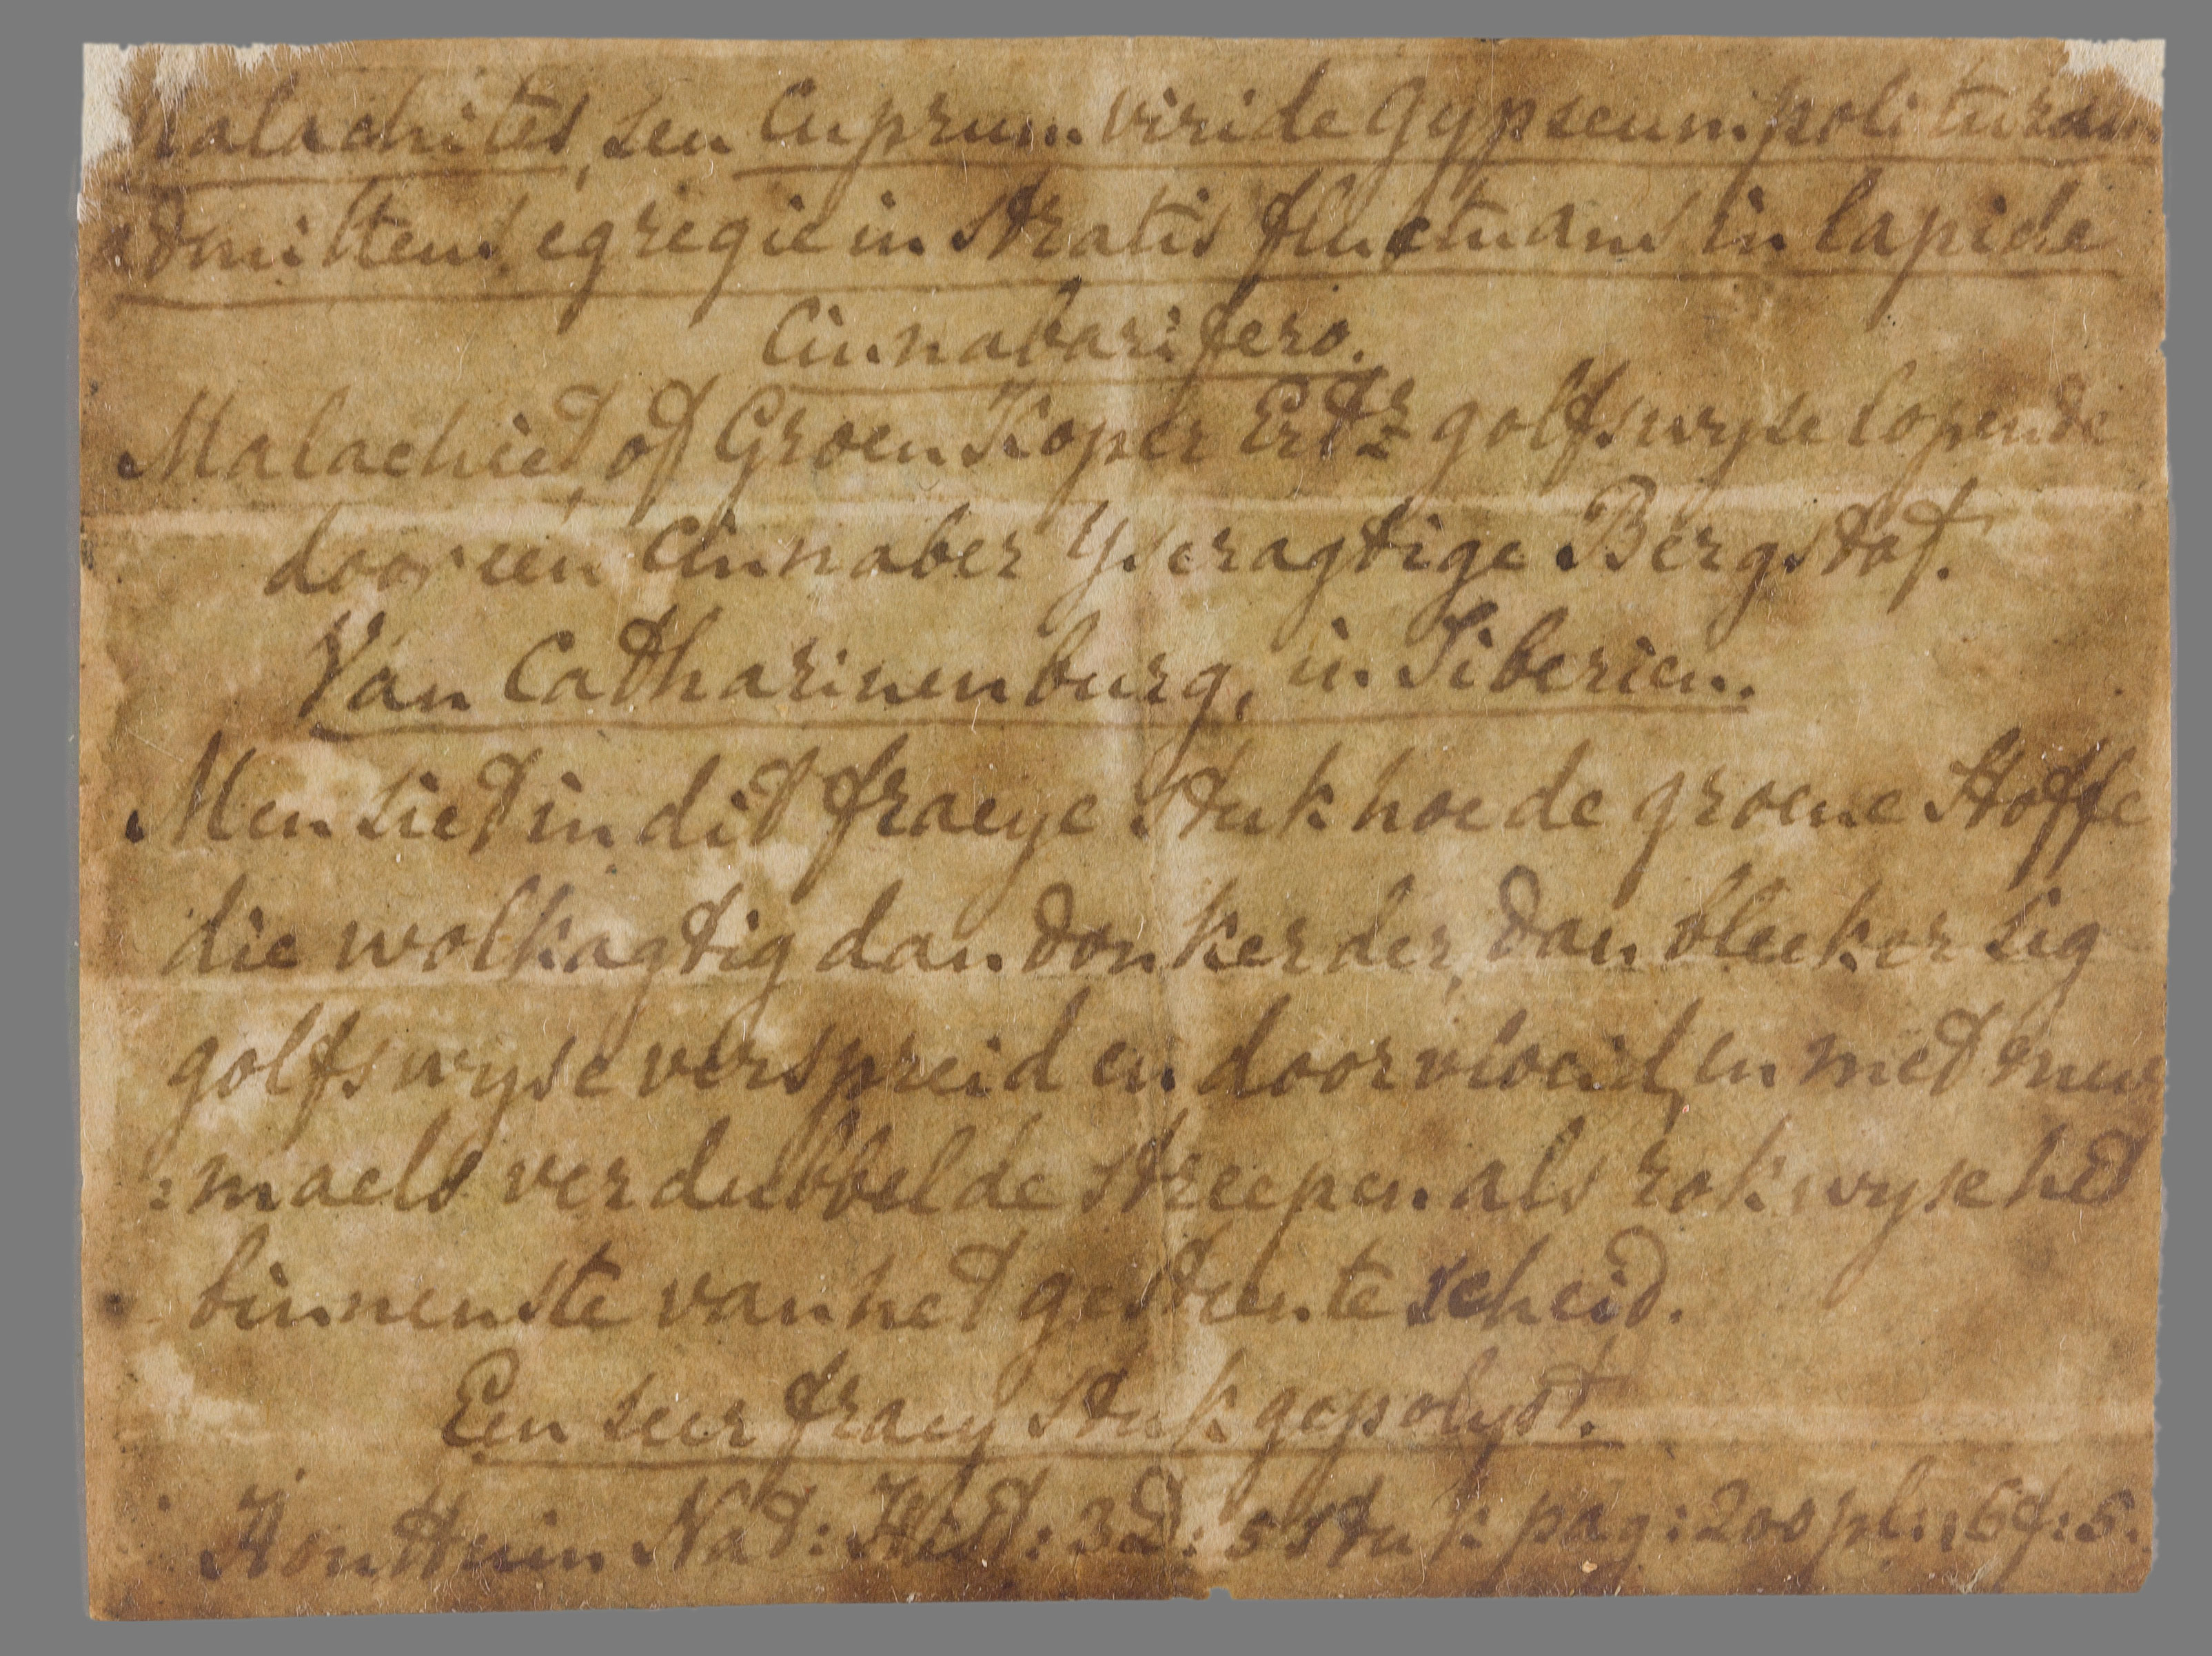 Malachites, seu Cuprum viride Gypseum polituram
admittens egregie in stratis fluctuans in lapide
Cinnabarifero.
Malachiet, of Groen Koper Erts golfswyse lopende
door een Cinnaber Yseragtige Bergstof.
Van Catharinenburg, in Siberien.
Men siet in dit fraeye stuk hoe de groene Stoffe
die wolkagtig dan donkerder, dan bleeker sig
golfswyse verspreid en doorvloeid, en met
:maels verdubbelde streepen als rokwyse het
binnenste van het gesteente scheid.
Een seer fraey stuk gepolyst.
Houttuin Nat: Hist: 3 D: 5 stuk pag: 200 pl: 6 f: 5.